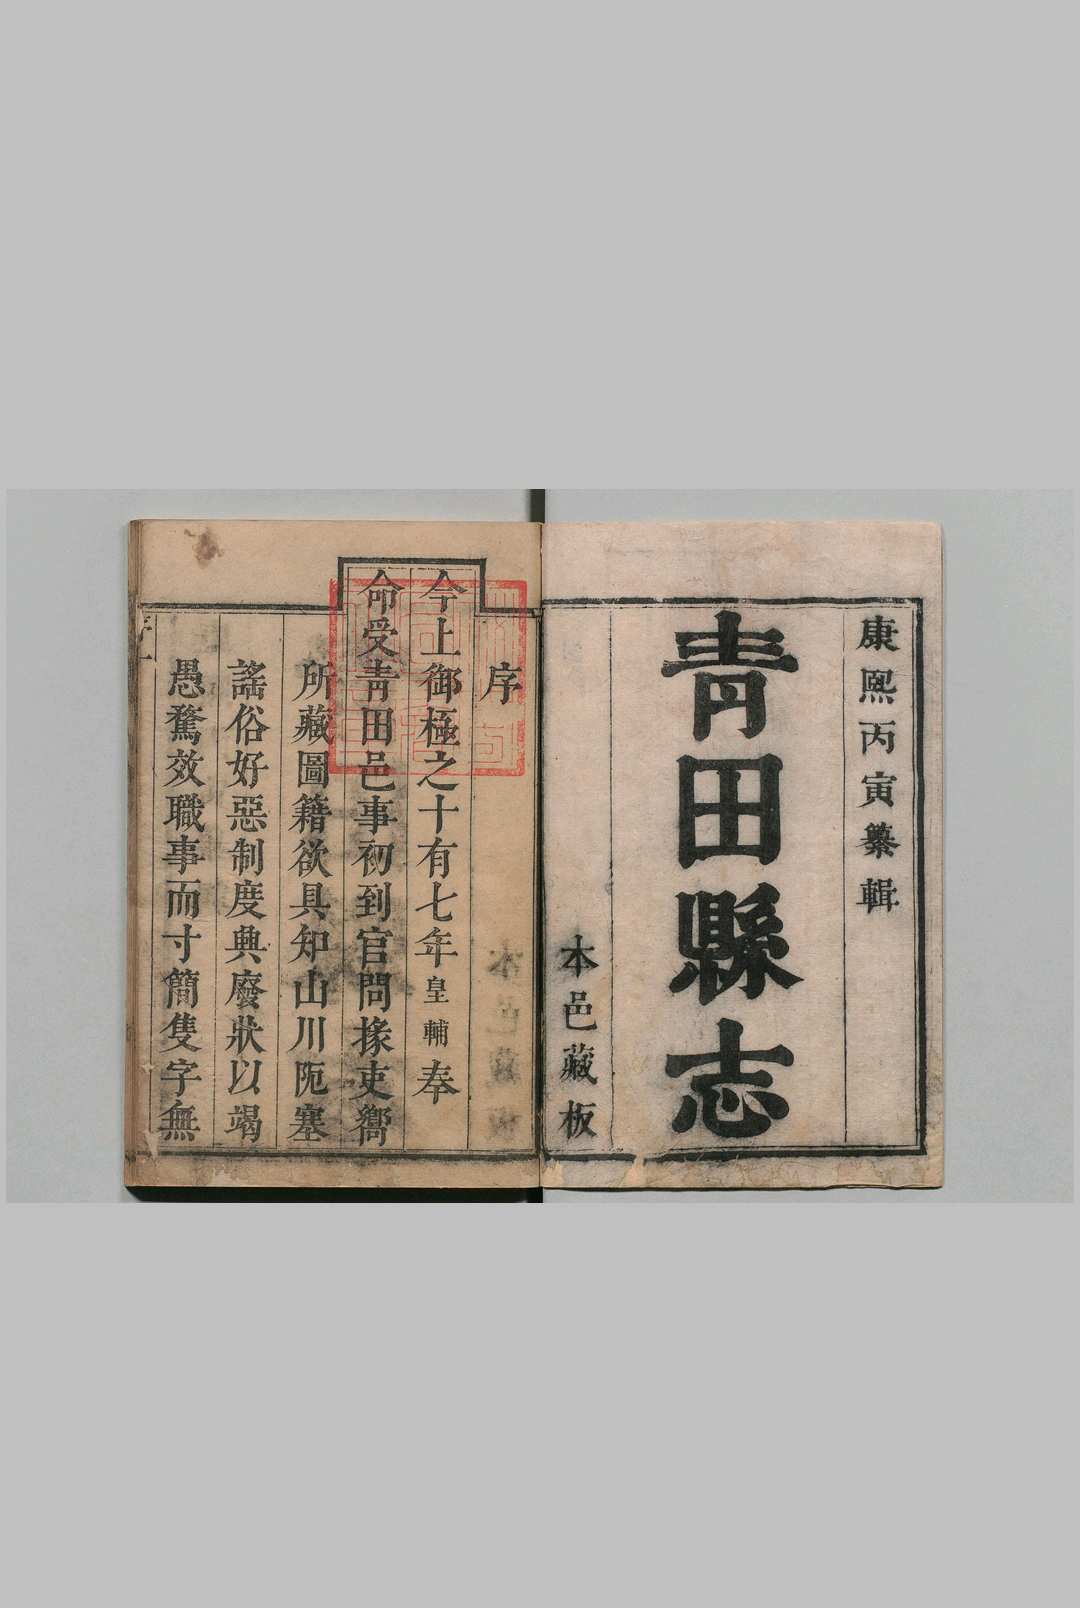 康熙丙寅纂輯
青田縣志
本邑藏板
序
今上御極之十有七年皇輔奉
命受青田邑事初到官問掾吏嚮
所藏圖籍欲具知山川阨塞
謠俗好惡制度興廢狀以竭
愚騖效職事而寸簡隻字無